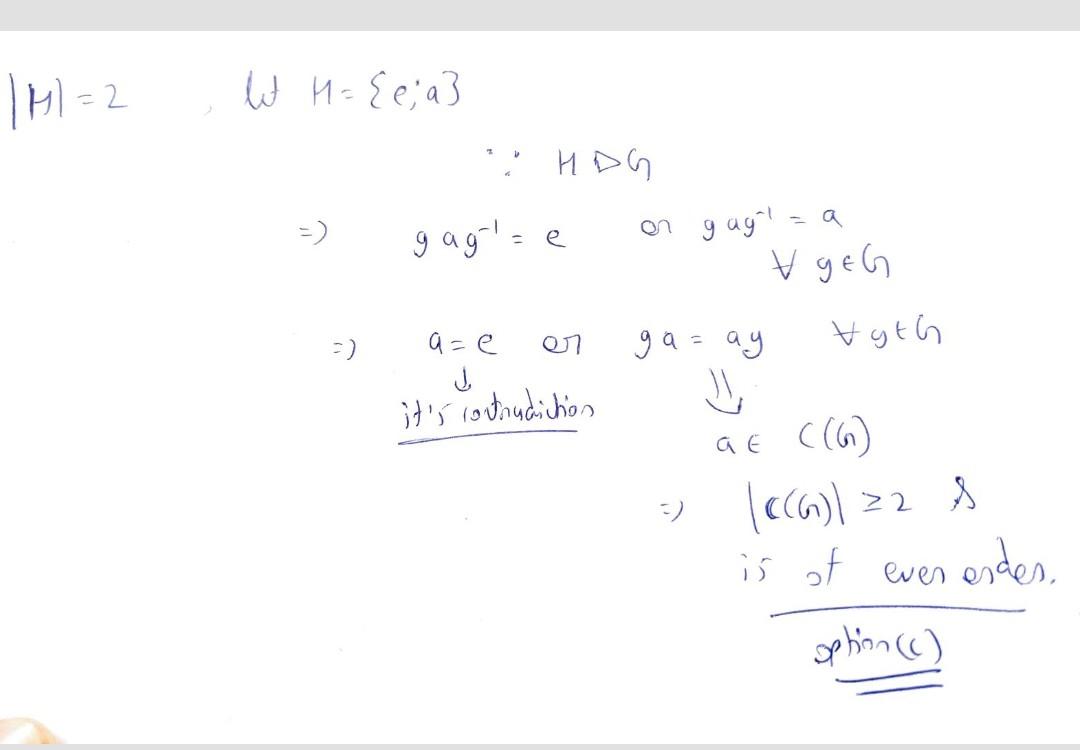 |H| = 2 , let H = {e; a}
∵ H ▷ G
=) g a g⁻¹ = e or g a g⁻¹ = a
∀ g ∈ G
=) a = e or g a = a g ∀ g ∈ G
↓ ⇓
it's contradiction
a ∈ C(G)
=) |C(G)| ≥ 2 &
is of even order.
option (c)